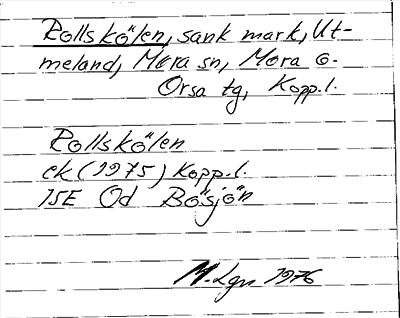 Rollskölen, sank mark, Ut-
meland, Mora sn, Mora o.
Orsa tg, Kopp.l.
Rollskölen
ek (1975) Kopp.l.
15E Od Bösjön
M. Lgn 1976